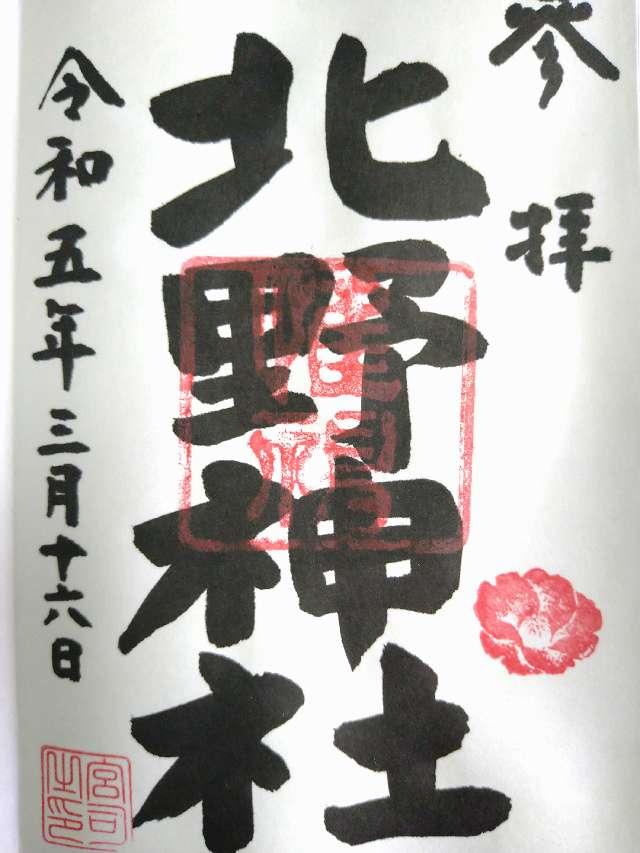 参拝
北野神社
令和五年三月十六日
宮司之印